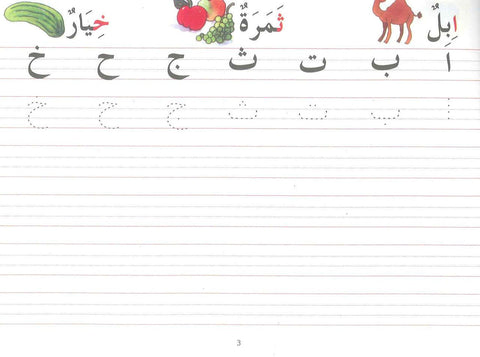 اِبِلٌ ثَمَرَةٌ خِيَارٌ
ا ب ت ث ج ح خ
ا ب ت ث ج ح خ
3